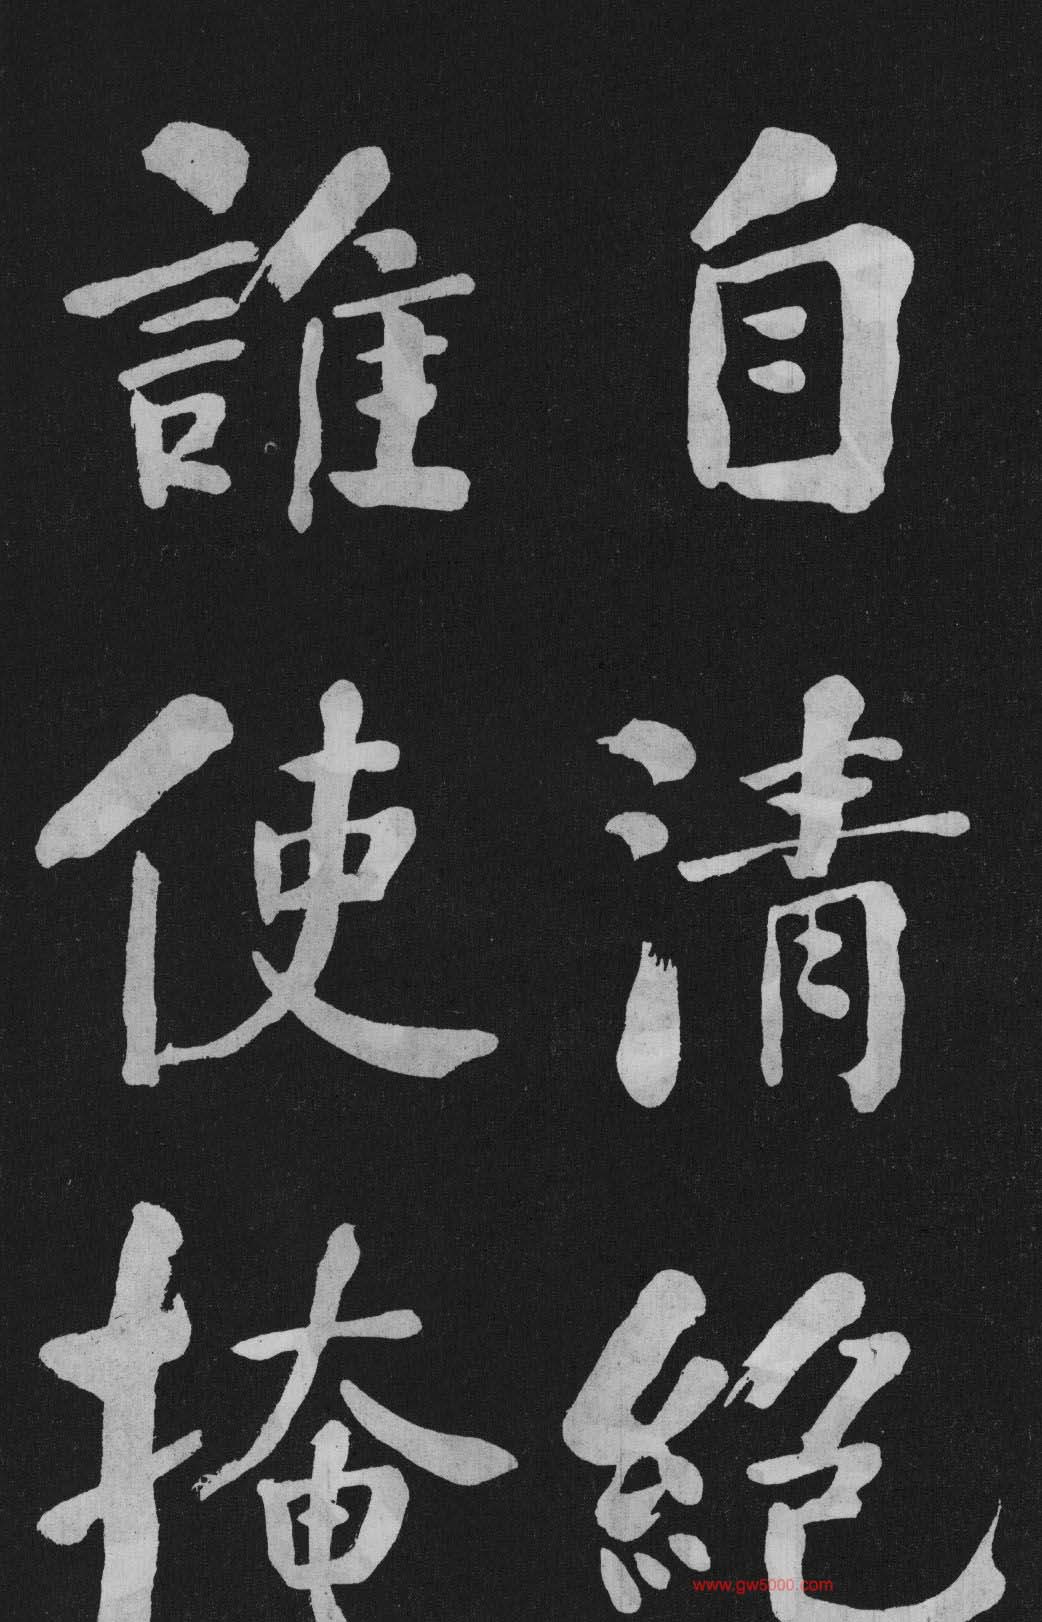 自清絕
誰使掩
www.gw5000.com